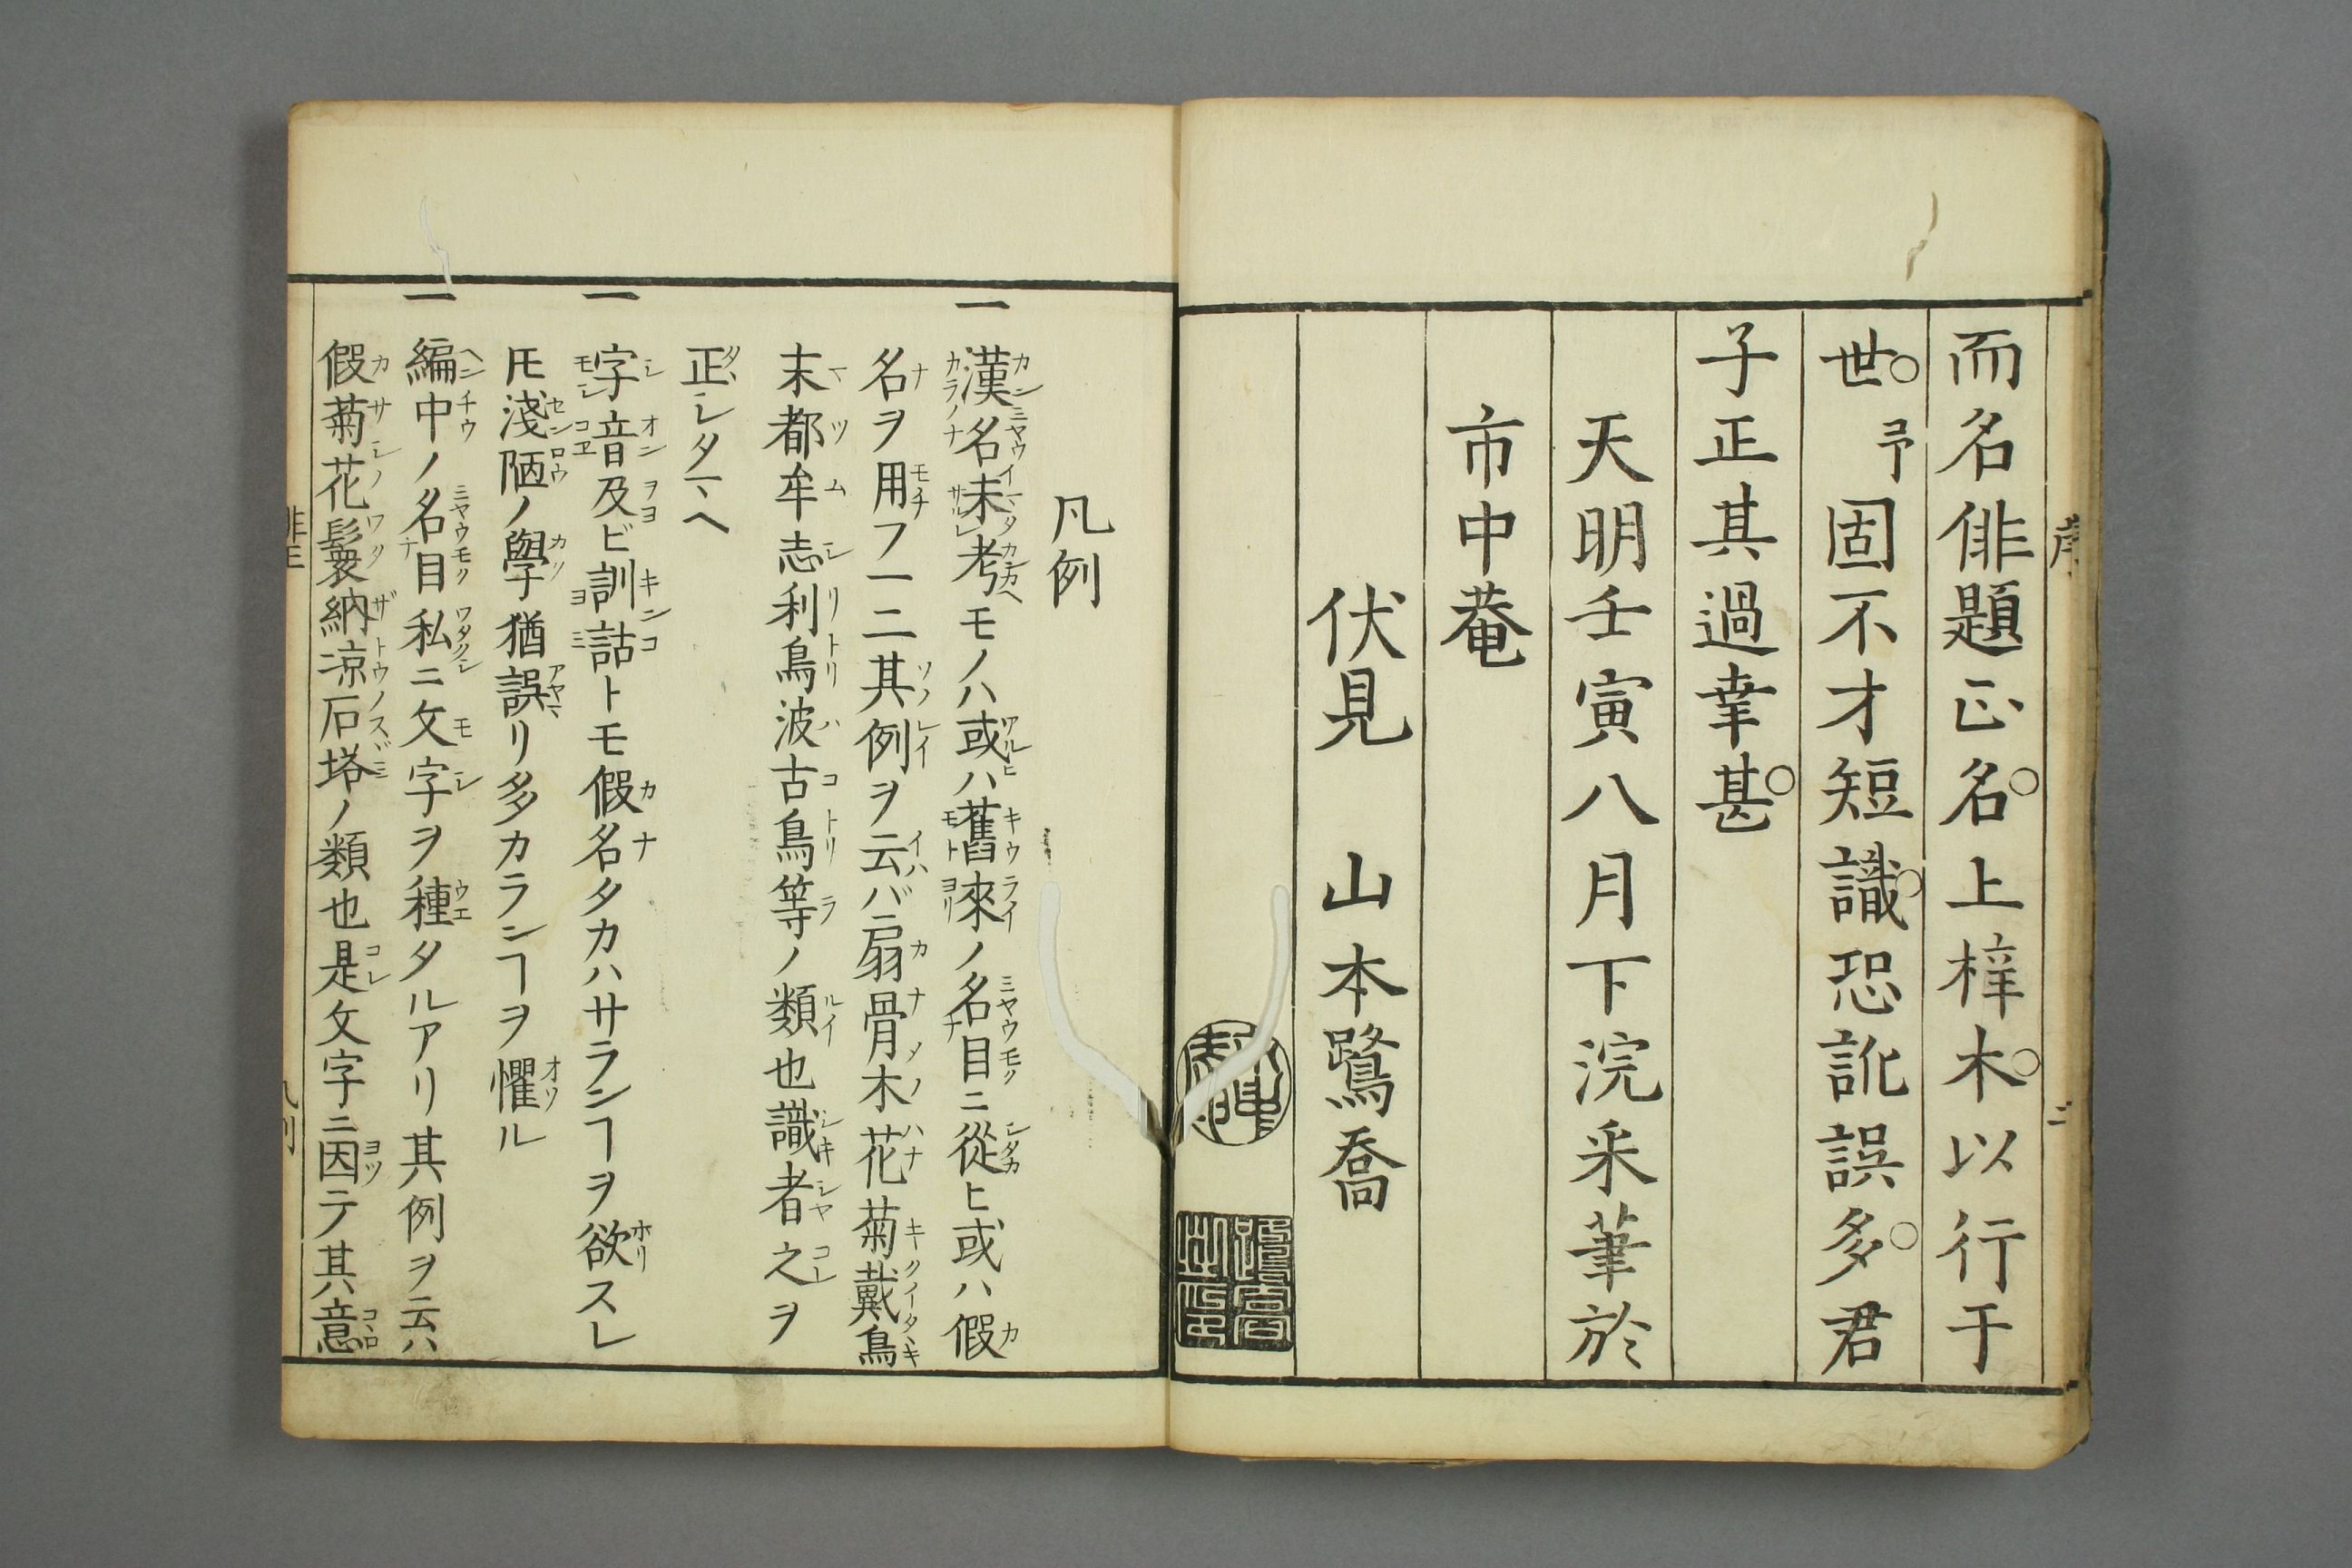 而名俳題正名上梓木以行于
世予固不才短識恐訛誤多君
子正其過幸甚
天明壬寅八月下浣采筆於
市中菴
伏見　山本鷺喬
凡例
一 漢名未考モノハ或ハ舊來ノ名目ニ從ヒ或ハ假
名ヲ用フ一二其例ヲ云バ扇骨木花菊戴鳥
末都牟志利鳥波古鳥等ノ類也識者之ヲ
正シタマヘ
一 字音及ビ訓詁トモ假名タカハサランヿヲ欲スレ
𪜈淺陋ノ學猶誤リ多カランヿヲ懼ル
一 編中ノ名目私ニ文字ヲ種タルアリ其例ヲ云ハ
假菊花鬘納凉石塔ノ類也是文字ニ因テ其意